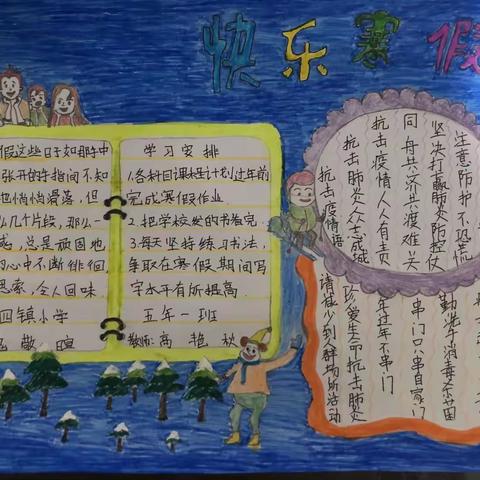 快乐寒假
假这些日子如那手中
张开的手指间不知
也悄悄滑落，但
么几个片段，那么一
感，总是顽固地
的心中不断徘徊
思索，令人回味.
四镇小学
敬暄
学习安排
计划过年前
完成寒假作业.
2.把学校发的书卷完.
3.每天坚持练习书法，
争取在寒假期间写
字水平有所提高.
五年一班
教师:高艳秋
抗击疫情语
抗击肺炎众志成城
抗击疫情人人有责
同舟共济共渡难关
坚决打赢肺炎防控仗
注意防护不恐慌
请减少到人群场所活动
珍爱生命抗击肺炎
年过年不串门
串门只串自家门
勤洗手消毒杀菌